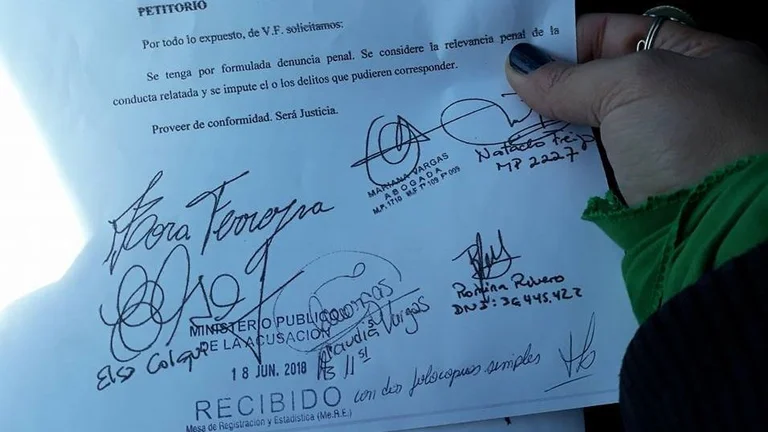 PETITORIO
Por todo lo expuesto, de V.F. solicitamos:
Se tenga por formulada denuncia penal. Se considere la relevancia penal de la
conducta relatada y se impute el o los delitos que pudieren corresponder.
Proveer de conformidad. Será Justicia.
MARIANA VARGAS
ABOGADA
M.P. 1710 M.F. Tº 109 Fº 009
MP 2227
Flora
Romina Rivero
DNI: 36.445.422
MINISTERIO PUBLICO
DE LA ACUSACIÓN
Claudia Vargas
Elso Colqui
18 JUN. 2018 Hs 11
RECIBIDO con dos fotocopias simples
Mesa de Registración y Estadística (Me.R.E.)